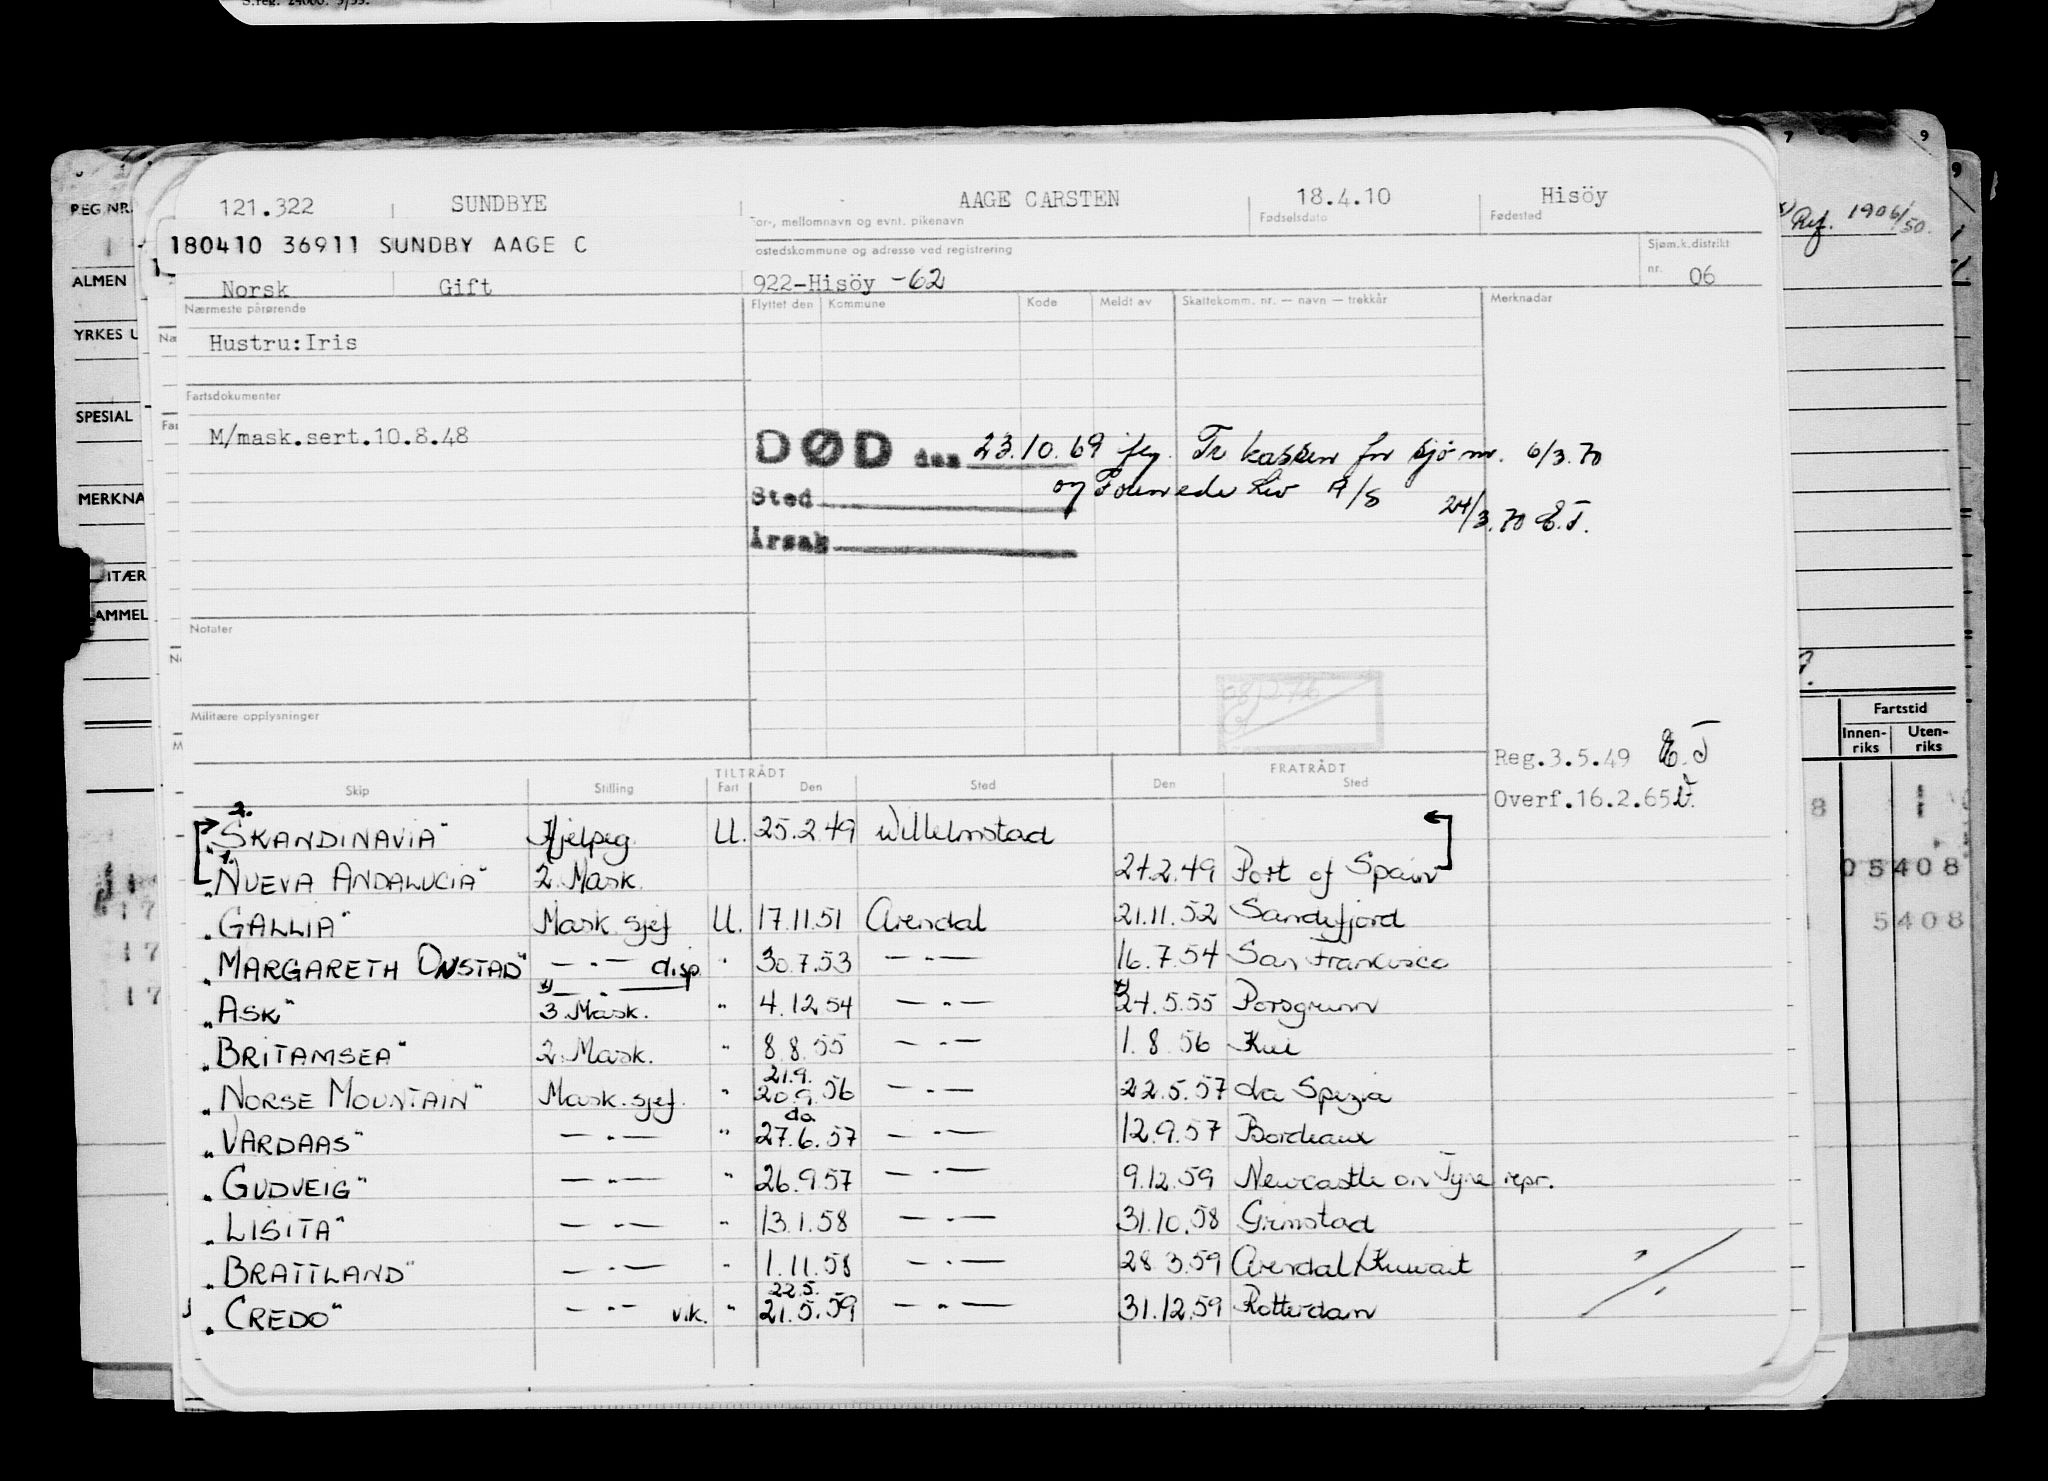 S.reg. 24000. 3/55.
7 9
9
REG.NR.
ALMEN
YRKES U
SPESIAL
MERKNA
ITÆR
AMMEL
Ref. 1906/50.
121.322 SUNDBYE AAGE CARSTEN 18.4.10 Hisöy
For-, mellomnavn og evnt. pikenavn Fødselsdato Fødestad
180410 36911 SUNDBY AAGE C
ostedskommune og adresse ved registrering Sjøm.k.distrikt
Norsk Gift 922-Hisöy -62 nr. 06
Nærmeste pårørende Flyttet den Kommune Kode Meldt av Skattekomm. nr. — navn — trekkår Merknader
Hustru:Iris
Fartsdokumenter
M/mask.sert.10.8.48
DØD den 23.10.69 flg. Tr kassen for sjø m. 6/3.70
Sted og Liv A/S 24/3.70 E.T.
Årsak
Notater
Militære opplysninger
Reg.3.5.49 E.T
Overf.16.2.65
Fartstid
Innen-riks Uten-riks
05408
5408
TILTRÅDT FRATRÅDT
Skip Stilling Fart Den Sted Den Sted
2.
"SKANDINAVIA" Hjelpeg. U. 25.2.49 Willelmstad
1.
"NUEVA ANDALUCIA" 2. Mask. 24.2.49 Port of Spain
"GALLIA" Mask.sjef U. 17.11.51 Arendal 21.11.52 Sandefjord
"MARGARETH ONSTAD" —"— disp. " 30.7.53 —"— 16.7.54 San Francisco
"ASK" 3. Mask. " 4.12.54 —"— 24.5.55 Porsgrunn
"BRITAMSEA" 2. Mask. " 8.8.55 —"— 1.8.56 Kiel
21.9.
"NORSE MOUNTAIN" Mask.sjef. " 20.9.56 —"— 22.5.57 La Spezia
da
"VARDAAS" —"— " 27.6.57 —"— 12.9.57 Bordeaux
"GUDVEIG" —"— " 26.9.57 —"— 9.12.59 Newcastle on Tyne repr.
"LISITA" —"— " 13.1.58 —"— 31.10.58 Grimstad
"BRATTLAND" —"— " 1.11.58 —"— 28.3.59 Arendal/Kuwait
22.5.
"CREDO" —"— vik. " 21.5.59 —"— 31.12.59 Rotterdam